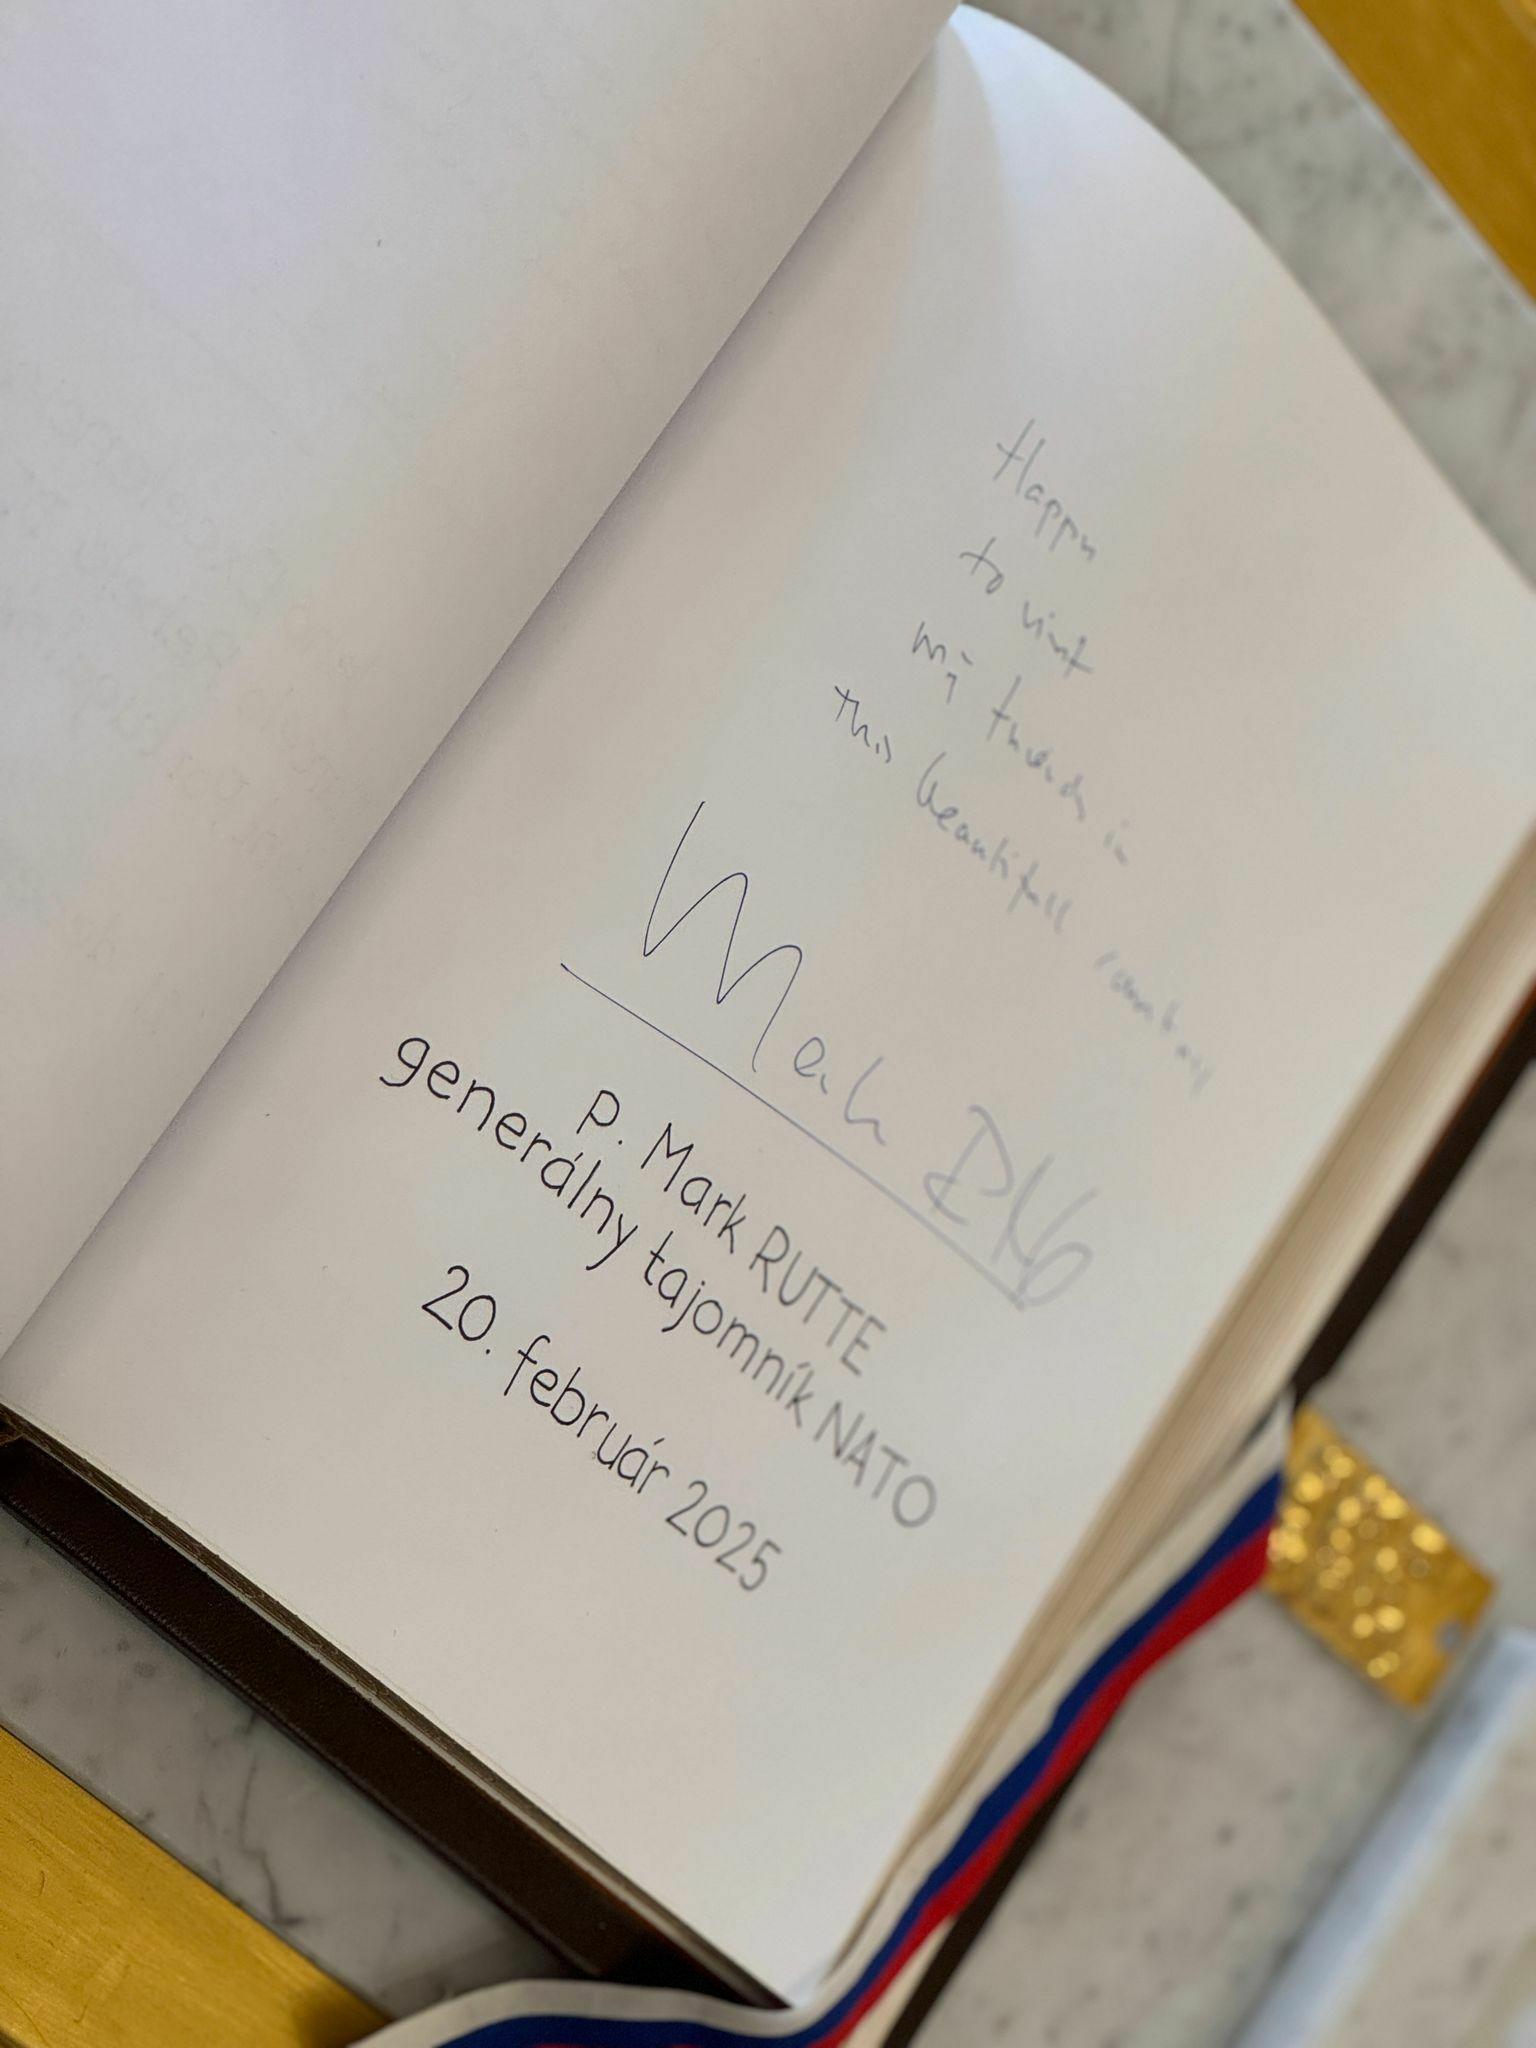 Happy
to visit
my friends in
this beautifull country
Mark
P. Mark RUTTE
generálny tajomník NATO
20. február 2025